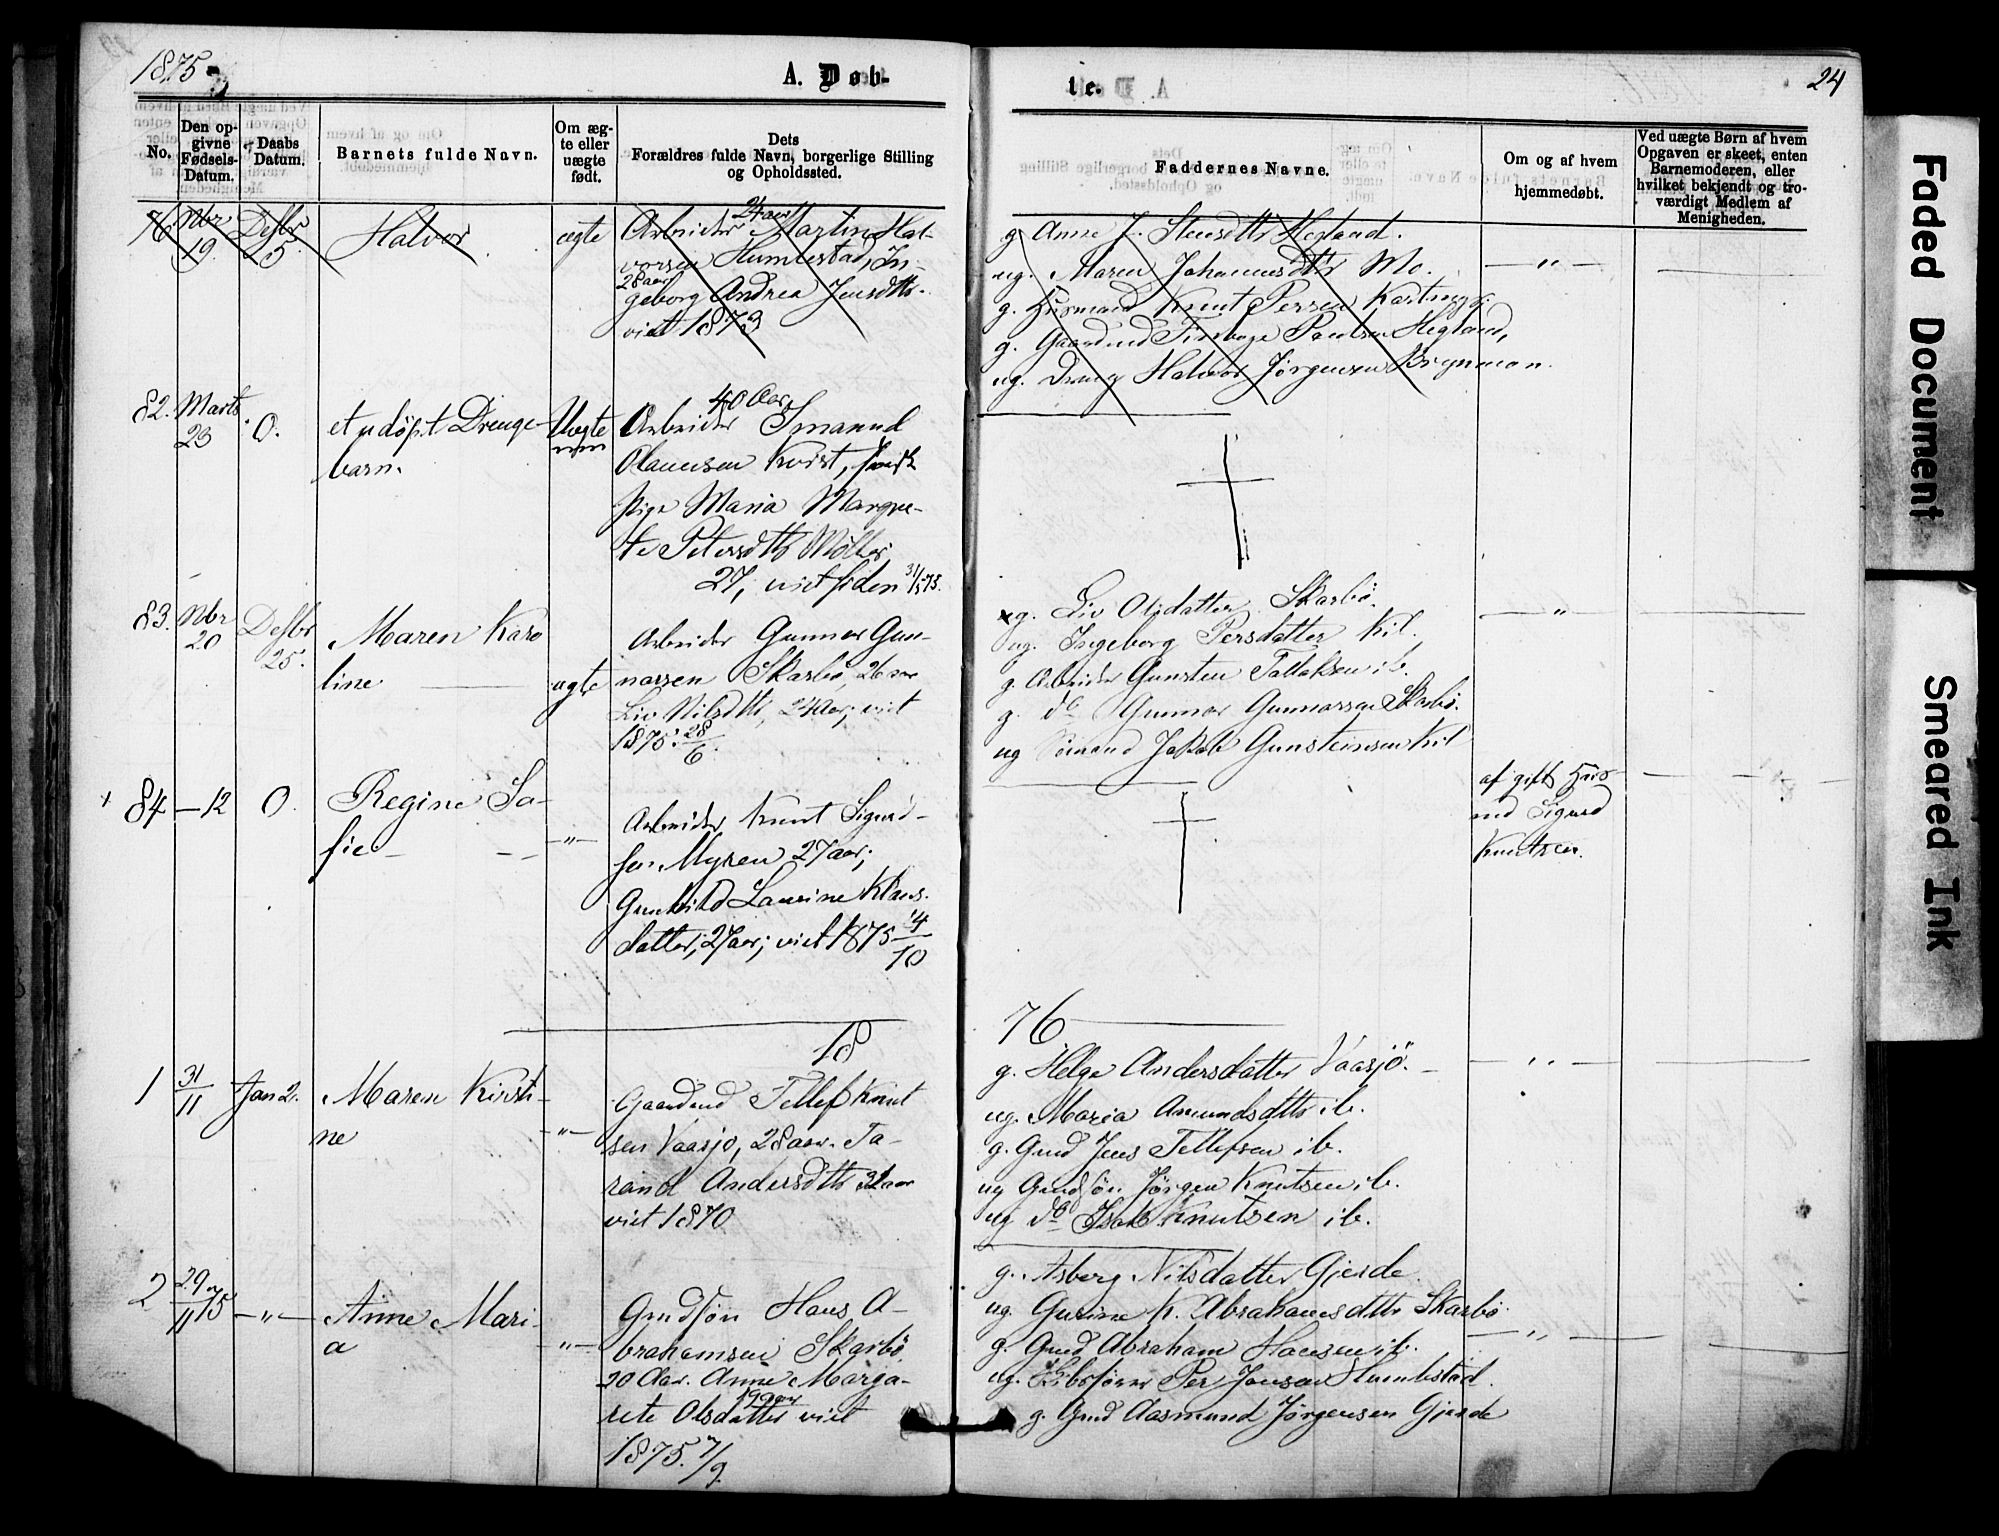 1875
A. Døb-
te.
24
No.
Den op-
givne
Fødsels-
Datum.
Daabs
Datum.
Barnets fulde Navn.
Om æg-
te eller
uægte
født.
Dets
Forældres fulde Navn, borgerlige Stilling
og Opholdssted.
Faddernes Navne.
Om og af hvem
hjemmedøbt.
Ved uægte Børn af hvem
Opgaven er skeet, enten
Barnemoderen, eller
hvilket bekjendt og tro-
værdigt Medlem af
Menigheden.
76 Nbr
19
Desbr
5
Halvor
ægte
24 aar
Arbeider Martin Hal-
vorsen Humlestad, In-
28 aar
geborg Andrea Jensdtr
viet 1873
g. Anne J. Hegland.
ug. Maren Johannesdtr Mo.
g. Husmand Knut Persen
g. Gaardmd Paulsen Hegland,
ug. Dreng Halvor Jörgensen Brynmoen.
82. Marts
23
0.
et udöpt Drenge-
barn.
Uægte
40 Aar
Arbeider
Olaussen
Pige Maria Margre-
te Petersdtr Möller
27, viet siden 75.
83. Nbr
20
Desbr
25.
Maren Karo
line
ægte
Arbeider Gunnar Gun-
narsen Skarbö, 26 aar
Liv Nilsdtr, 24 Aar, viet
1875 28/6.
g. Liv Olsdatter Skarbö.
ug. Ingeborg Persdatter Kil.
g. Arbeider Gunsten Tallaksen ib.
g. do Gunnar Gunnarsen Skarbö.
ug Sömand Jakob Gunstensen Kil
84 — 12
0.
Regine So-
fie
— " —
Arbeider Knut Sigurd-
sen Myren 27 aar;
Gunhild Laurine Klaus-
datter, 27 aar; viet 1875 14/10
af gift Hus
md Sigurd
Knutsen.
18
76
1 31/11
Jan 2.
Maren Kirsti-
ne
— " —
Gaardmd Tellef Knut
sen Vaasjö, 28 aar. Ta-
rand Andersdtr 31 aar
viet 1870
g. Helge Andersdatter Vaasjö.
ug. Maria Amundsdtr ib.
g. Gmd Jens Tellefsen ib.
ug Gmdsön Jörgen Knutsen ib.
ug do Isak Knutsen ib.
2 29/11 75
— " —
Anne Mari-
a
— " —
Gmdsön Hans A-
brahamsen Skarbö
20 Aar. Anne Marga-
19 aar
rete Olsdatter viet
1875. 7/9.
g. Asberg Nilsdatter Gjerde
ug. Gurine K. Abrahamsdtr Skarbö
g. Gmd Abraham Hansen ib.
ug. Per Jensen Humlestad.
g. Gmd Aasmund Jörgensen Gjerde
Faded Document
Smeared Ink